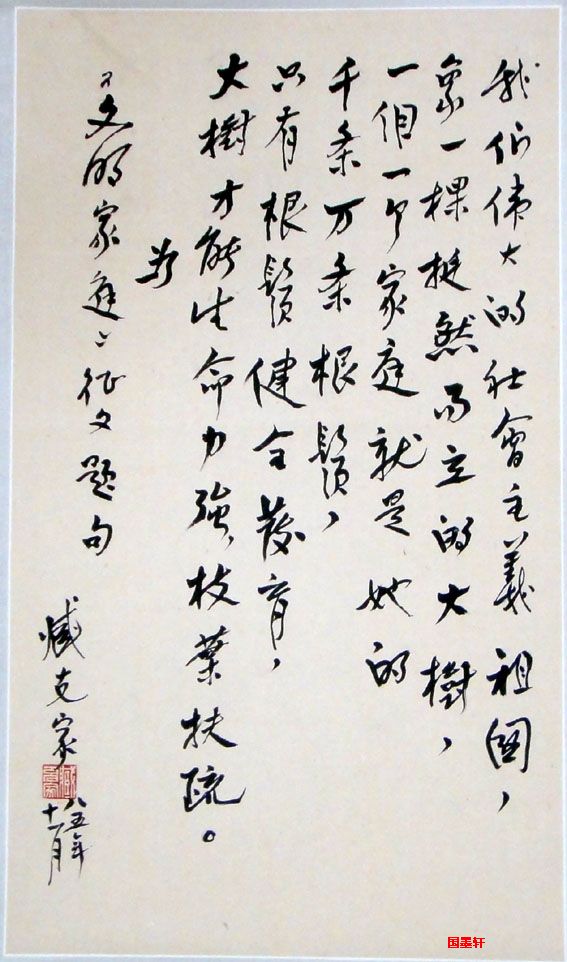 我们伟大的社會主義祖國，
象一棵挺然而立的大樹，
一個一个家庭就是她的
千条万条根鬚，
只有根鬚健全發育，
大樹才能生命力強，枝葉扶疏。
为
“文明家庭”征文题句
臧克家
八五年
十一月
国墨轩